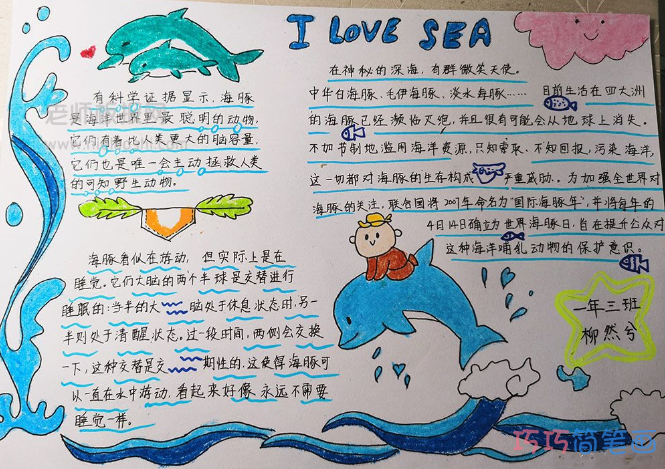 I LOVE SEA
有科学证据显示，海豚
是海洋世界里最聪明的动物，
它们有着比人类更大的脑容量，
它们也是唯一会主动拯救人类
的可知野生动物。
海豚看似在游动，但实际上是在
睡觉。它们大脑的两个半球是交替进行
睡眠的：当半的大脑处于休息状态时，另一
半则处于清醒状态。过一段时间，两侧会交换
一下，这种交替是交期性的，这使得海豚可
以一直在水中游动，看起来好像永远不需要
睡觉一样。
在神秘的深海，有群微笑天使。
中华白海豚、毛伊海豚、淡水海豚……目前生活在四大洲
的海豚已经濒临灭绝，并且很有可能会从地球上消失。
不加节制地滥用海洋资源，只知索取、不知回报，污染海洋，
这一切都对海豚的生存构成严重威胁。为加强全世界对
海豚的关注，联合国将2007年命名为“国际海豚年”，并将每年的
4月14日确立为世界海豚日，旨在提升公众对
这种海洋哺乳动物的保护意识。
一年三班
柳然兮
巧巧简笔画